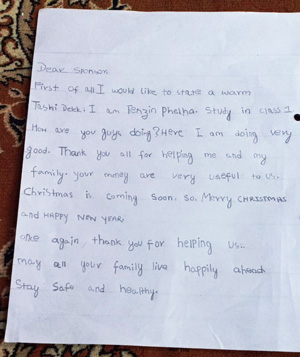 Dear sponsor
First of all I would like to stare a warm
Tashi Delek. I am Tenzin Phelha. Study in class 1
How are you guys doing? Here I am doing very
good. Thank you all for helping me and my
family. your money are very useful to us.
Christmas is coming soon. so. Merry CHRISTMAS
and HAPPY NEW YEAR,
once again, thank you for helping us..
may all your family live happily ahead
Stay safe and healthy.